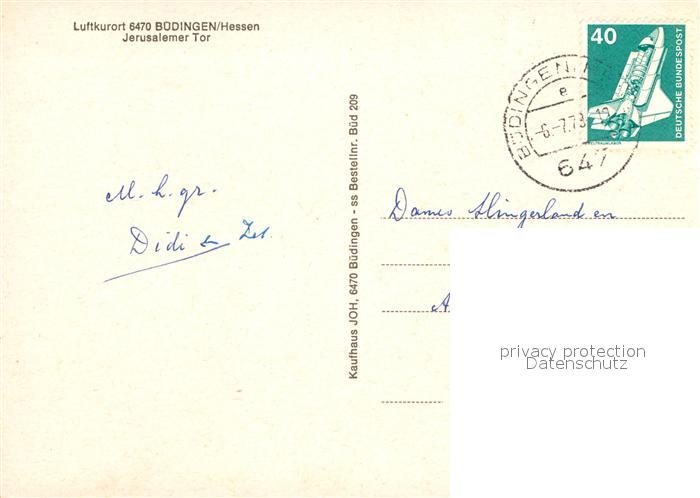 Luftkurort 6470 BÜDINGEN/Hessen
Jerusalemer Tor
40
DEUTSCHE BUNDESPOST
WELTRAUMLABOR
BÜDINGEN
e
-6.-7.78
647
M. h. gr.
Didi en
Kaufhaus JOH, 6470 Büdingen - ss Bestellnr. Büd 209
Dames Slingerland en
A
privacy protection
Datenschutz